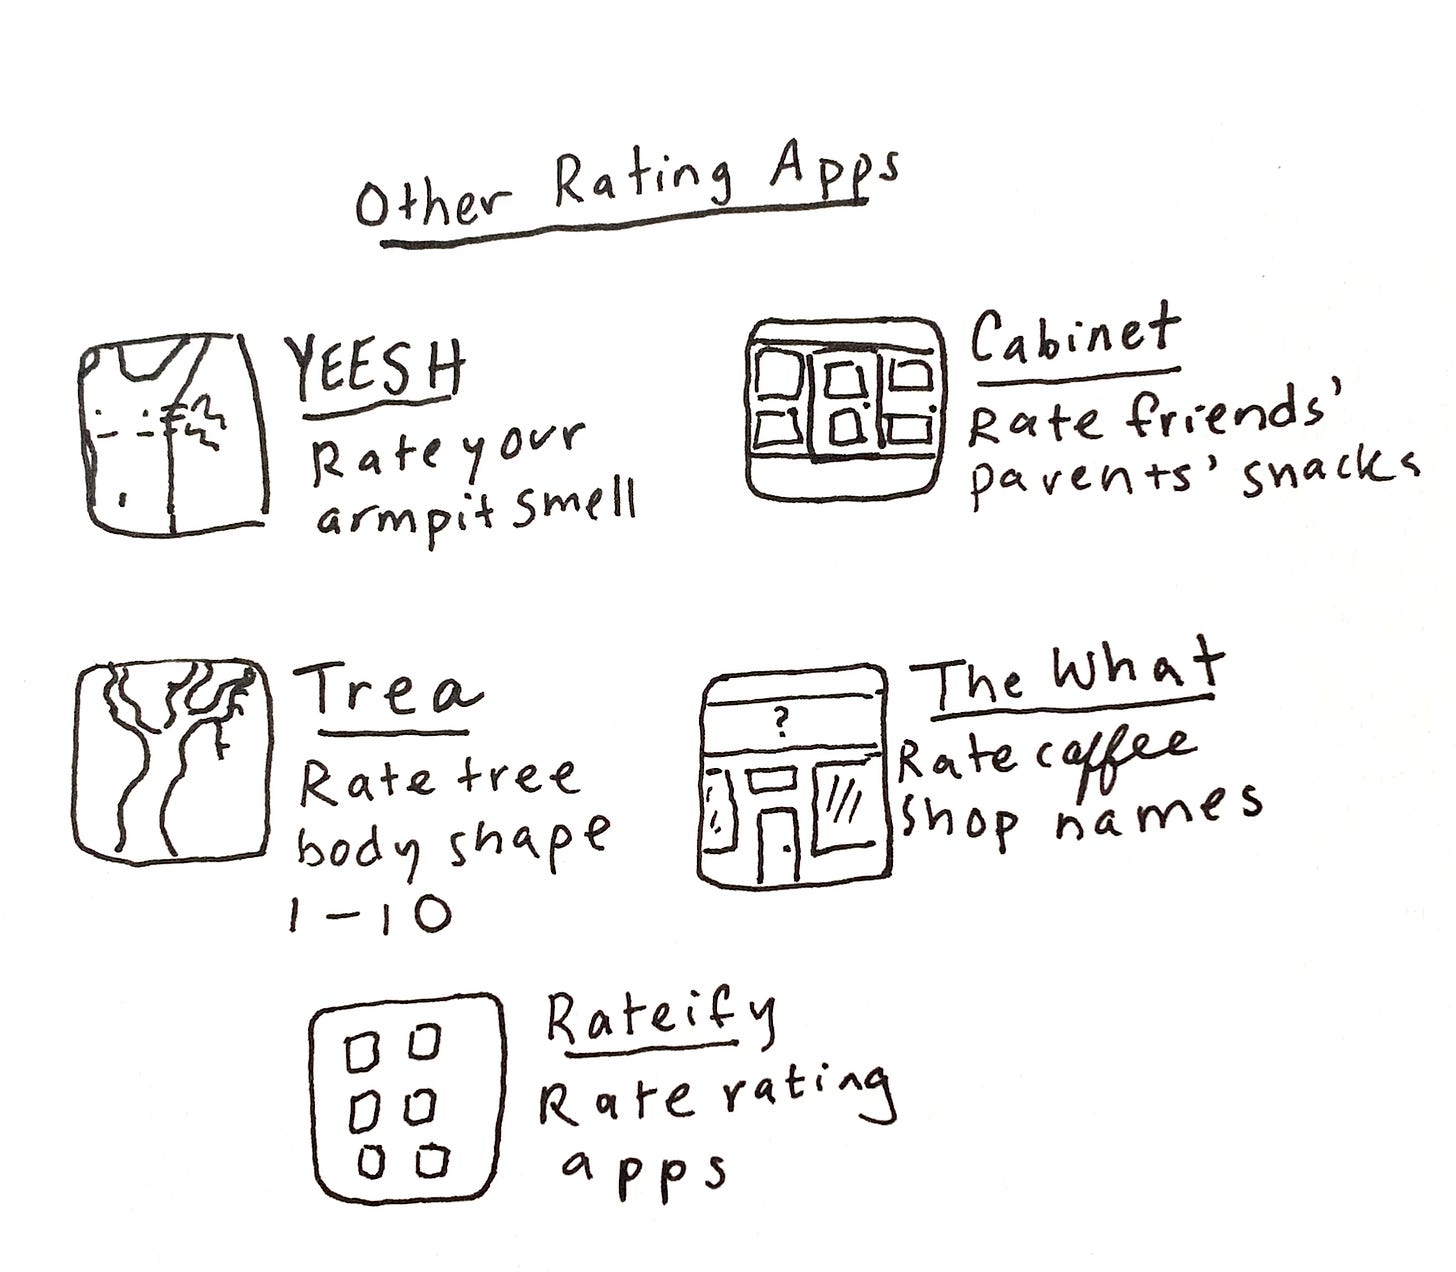 Other Rating Apps
YEESH
Rate your
armpit smell
Cabinet
Rate friends'
parents' snacks
Trea
Rate tree
body shape
1-10
?
The What
Rate coffee
shop names
Rateify
Rate rating
apps